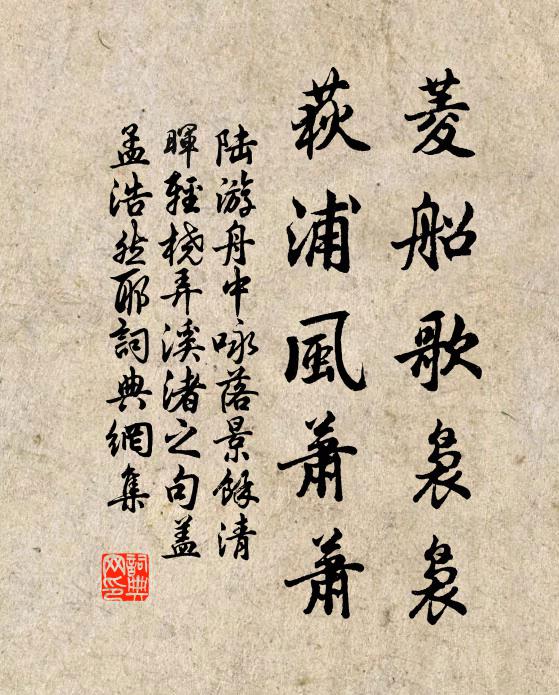 菱船歌袅袅
荻浦風蕭蕭
陆游舟中咏落景餘清
暉輕橈弄溪渚之句盖
孟浩然耶詞典網集
詞典网印